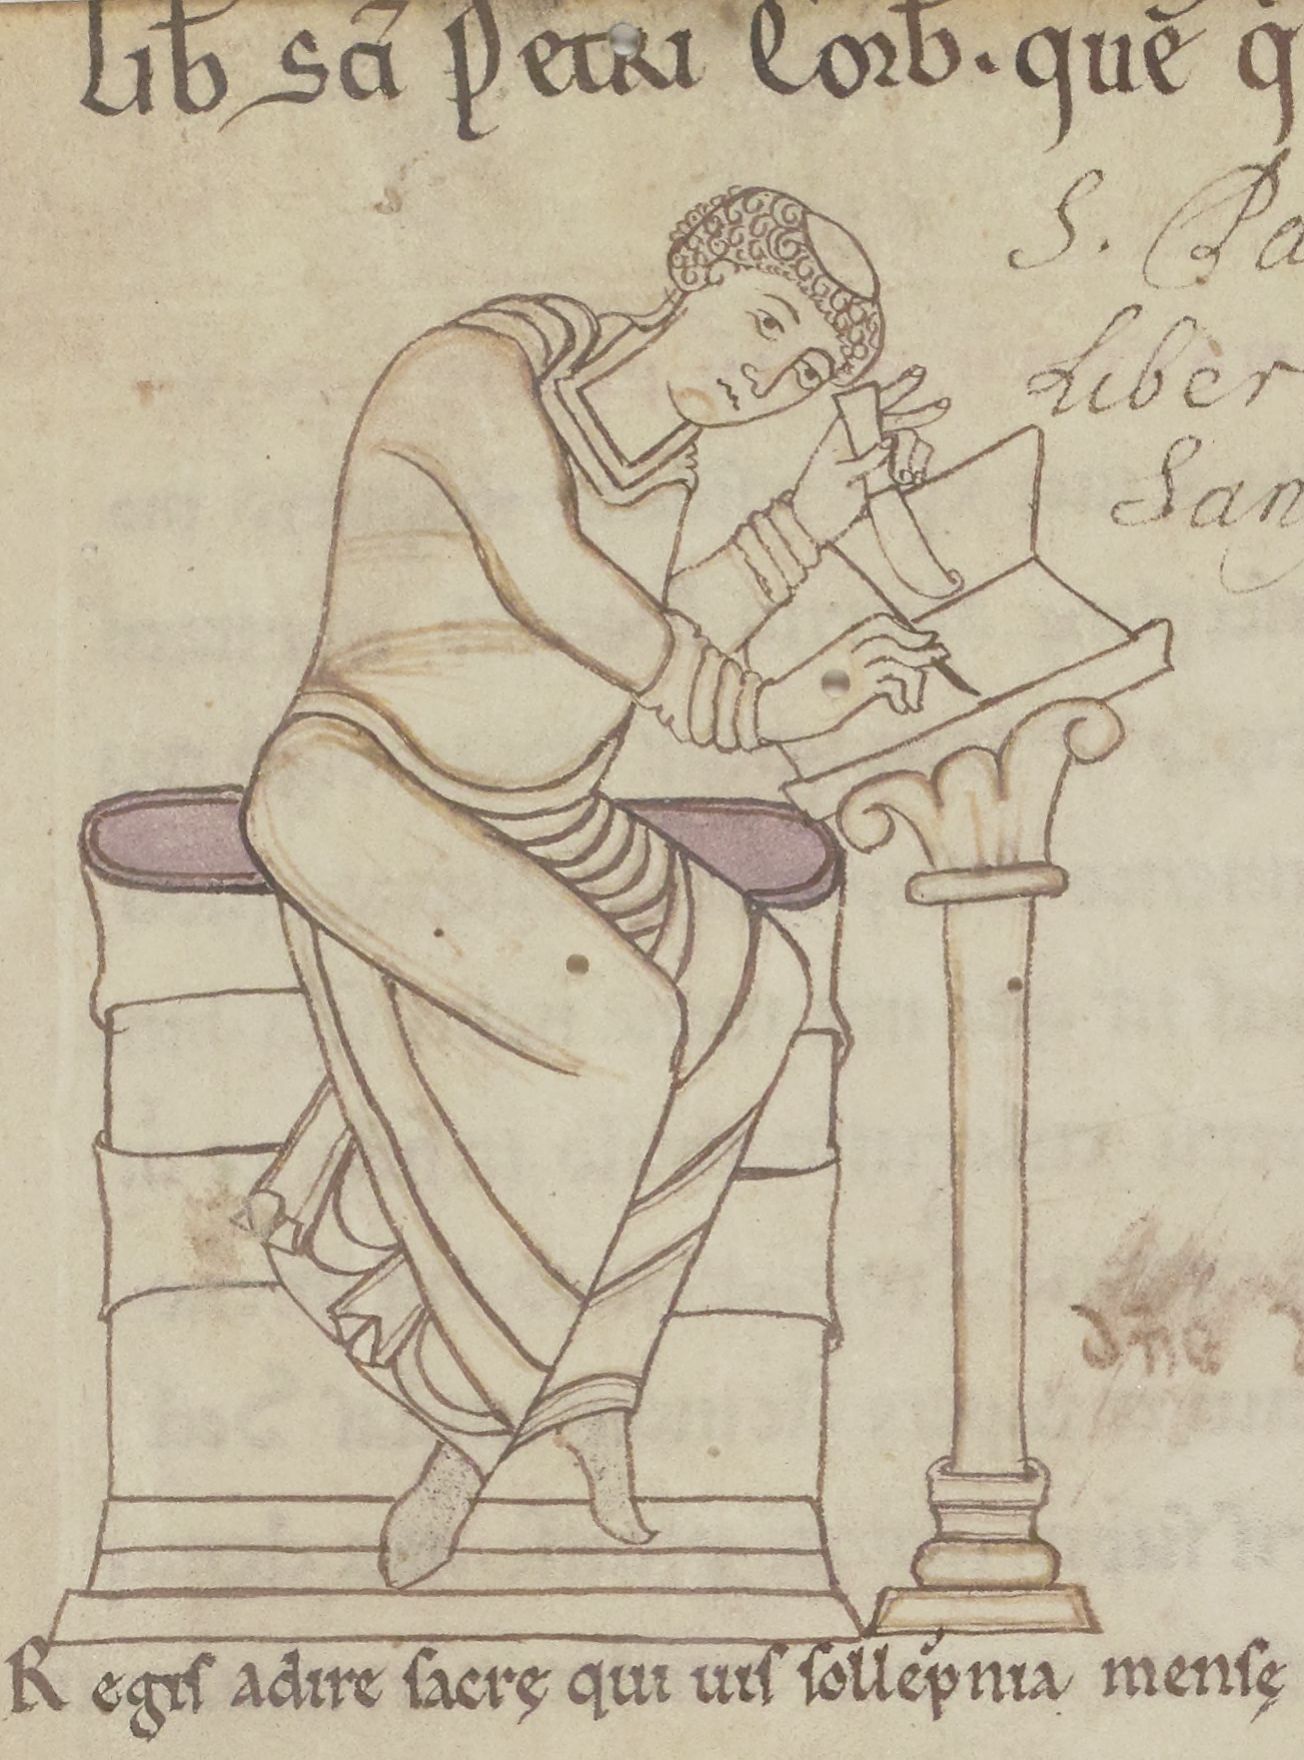 Lib sci Petri Corb. quē q
S. Pa
Liber
San
dn̄e
Regis adire sacrę qui uis sollępnia mensę